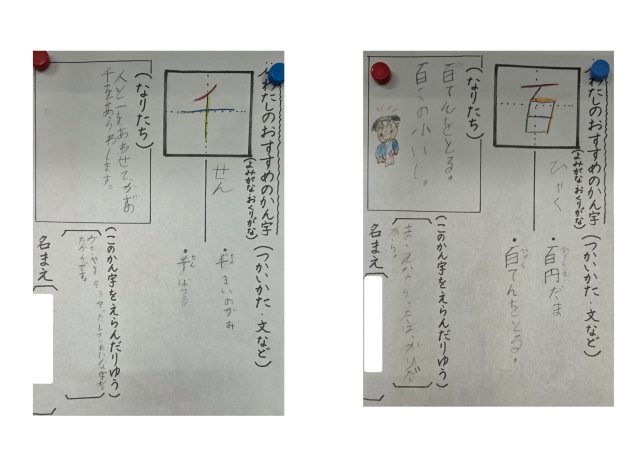 わたしのおすすめのかん字
(よみがな・おくりがな)
千
せん
(つかいかた・文など)
・千まいのかみ
・千ばづる
(なりたち)
人と一をあわせて、かずの
千をあらわします。
(このかん字をえらんだりゆう)
名まえ
わたしのおすすめのかん字
(よみがな・おくりがな)
百
ひゃく
(つかいかた・文など)
・百円だま
・百てんをとる。
(なりたち)
百てんをとる。
百この小いし。
(このかん字をえらんだりゆう)
から。
名まえ